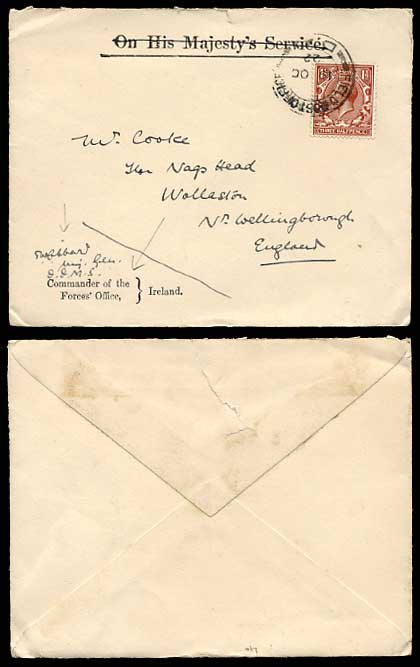 On His Majesty's Service.
FIELD POST OFFICE
OC
22
THREE HALFPENCE
Mr. Cooke
The Nags Head
Wollaston
Nr. Wellingborough
England
Maj. Gen.
D.D.M.S.
Commander of the
Forces' Office, } Ireland.